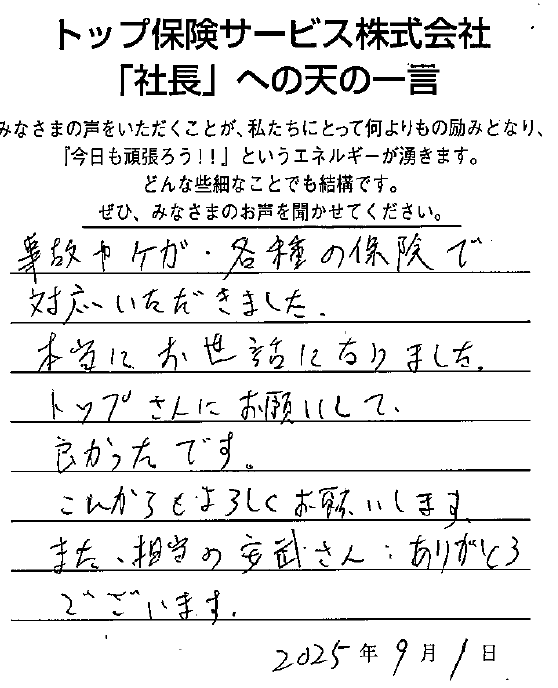 トップ保険サービス株式会社
「社長」への天の一言
みなさまの声をいただくことが、私たちにとって何よりもの励みとなり、
『今日も頑張ろう!!』というエネルギーが湧きます。
どんな些細なことでも結構です。
ぜひ、みなさまのお声を聞かせてください。
事故やケガ・各種の保険で
対応いただきました。
本当にお世話になりました。
トップさんにお願いして、
良かったです。
これからもよろしくお願いします。
また、担当の安武さん:ありがとう
ございます。
2025年9月1日